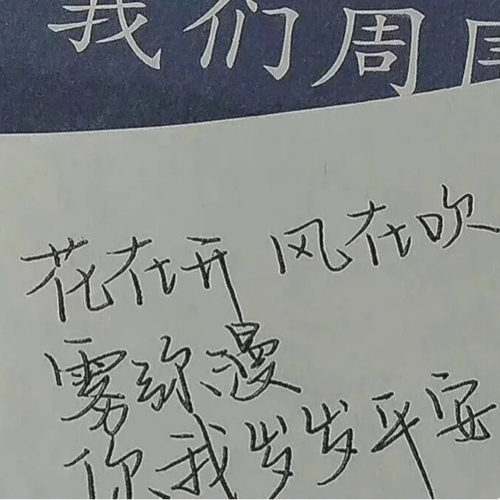 我们周
花在开 风在吹
雾弥漫
你我岁岁平安